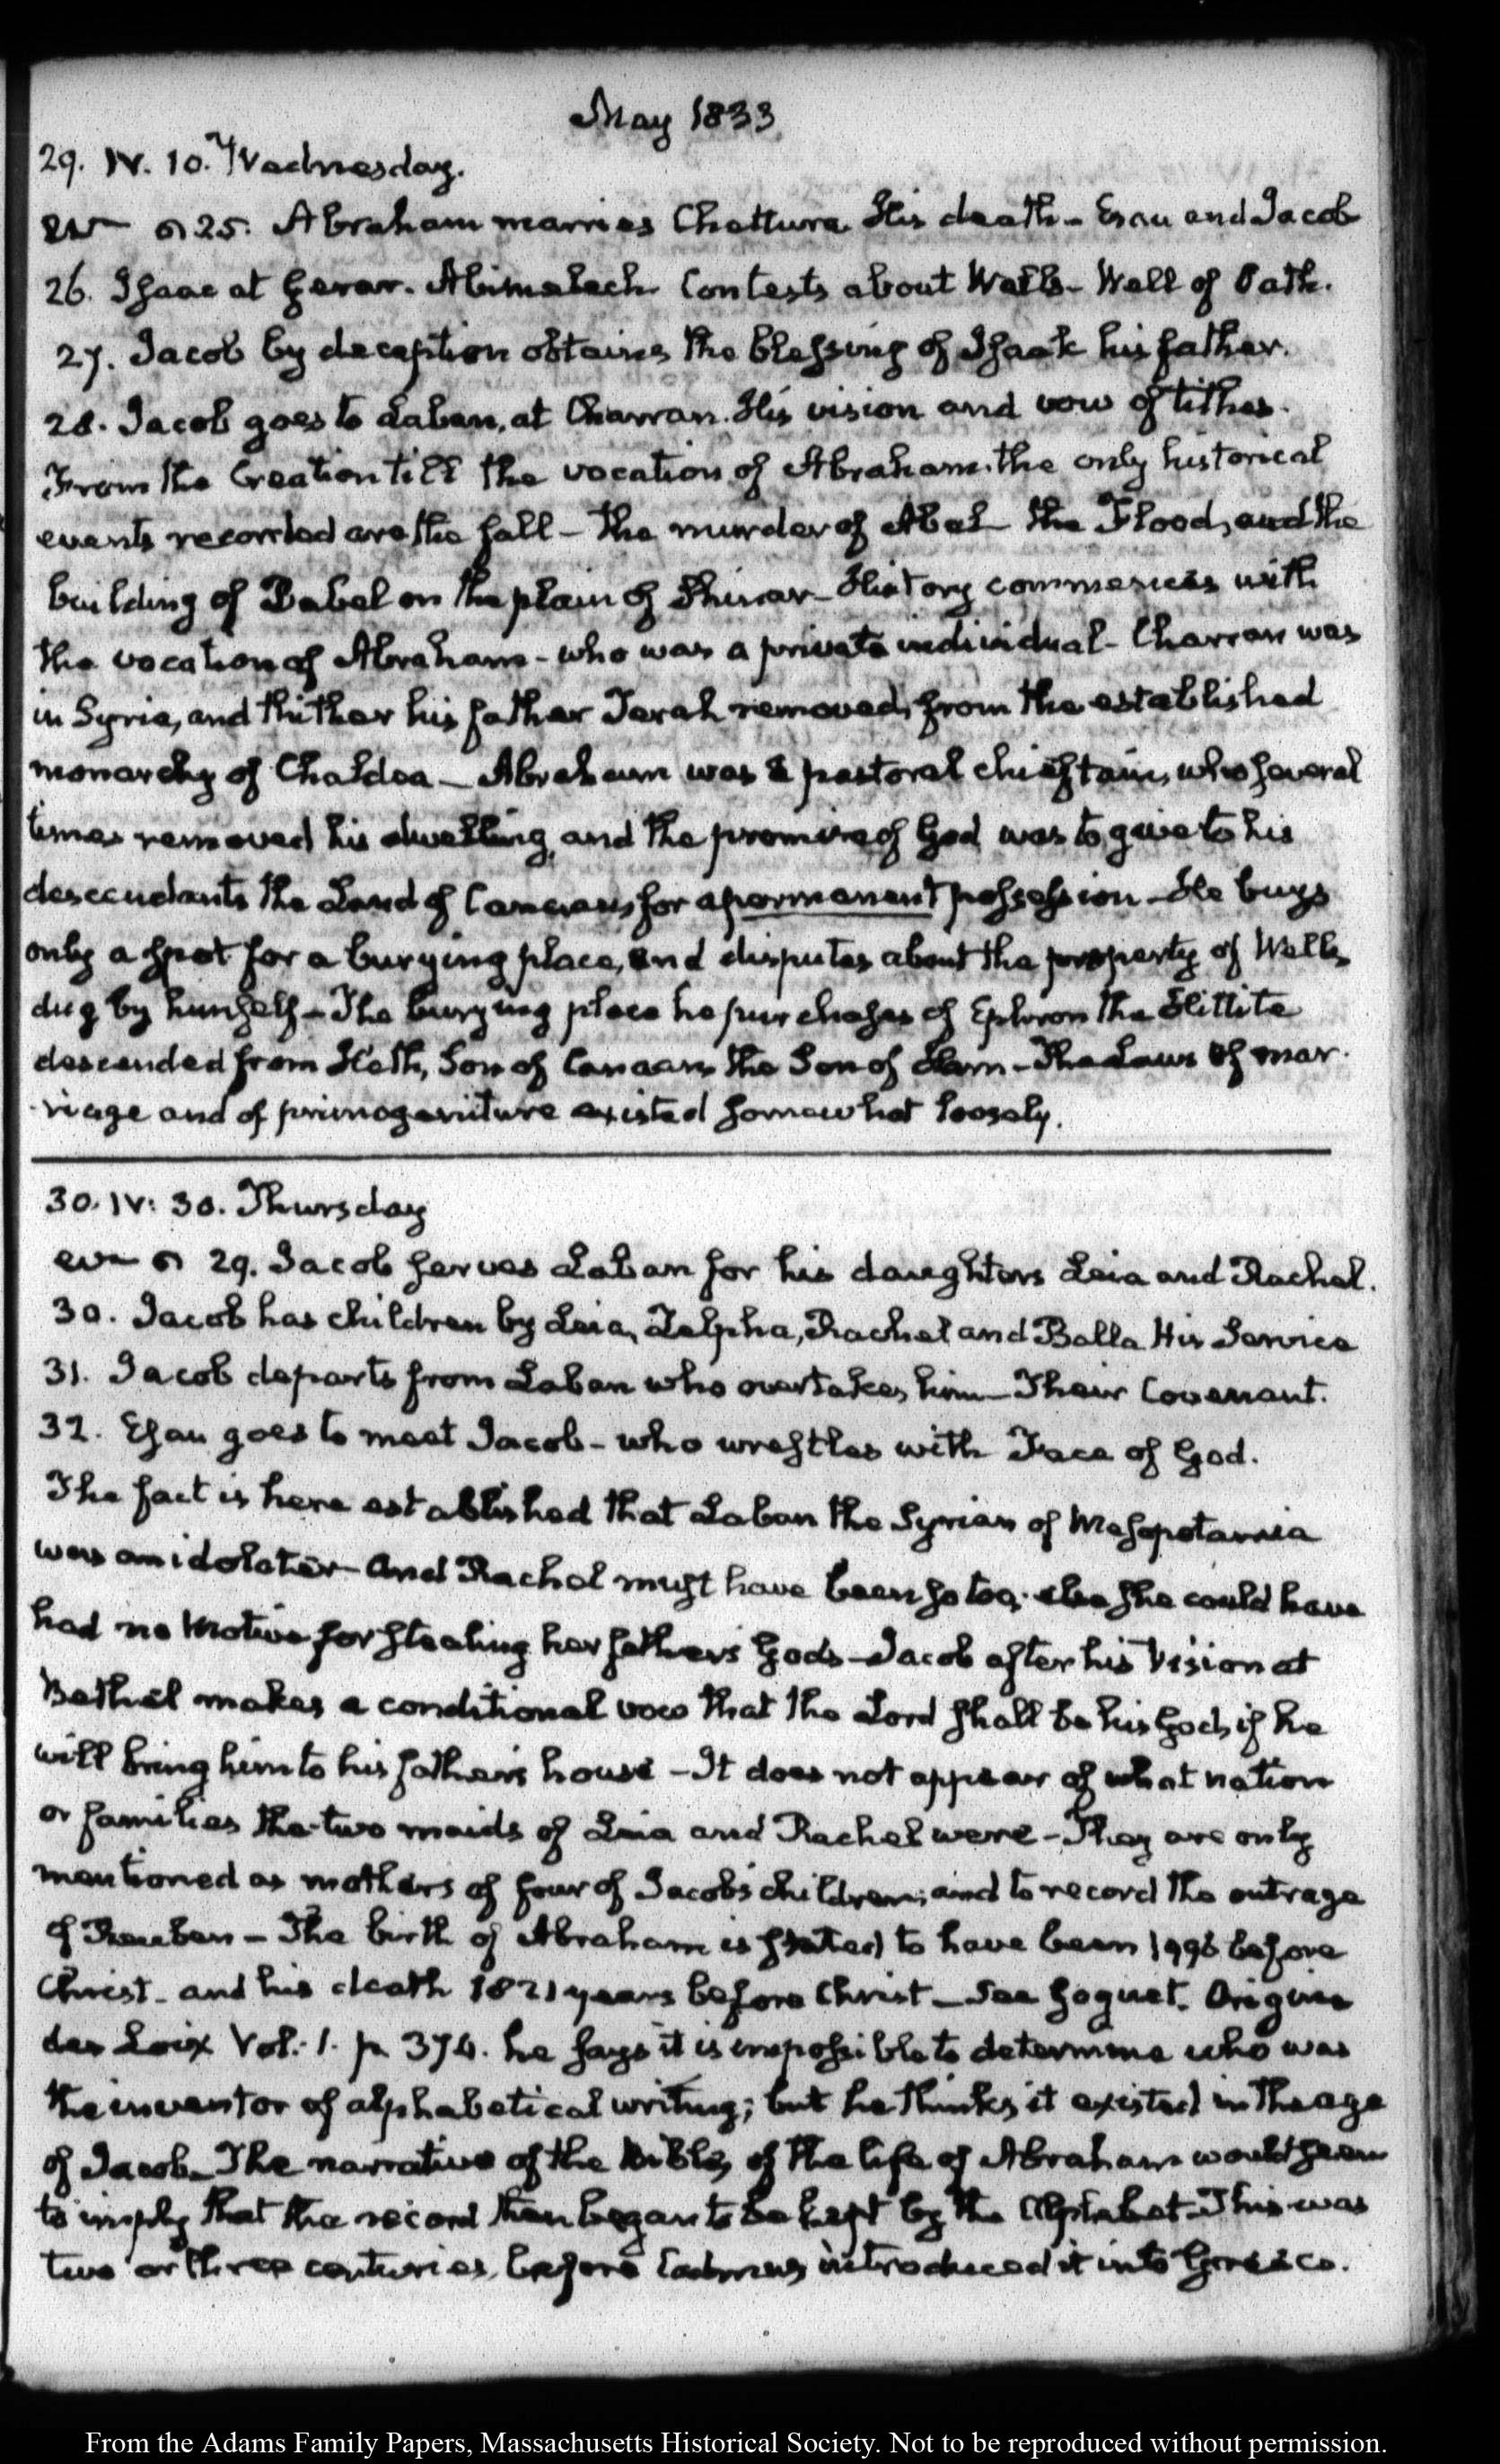 May 1833
29. IV. 10. Wednesday.
25. Abraham marries Chettura His death - Esau and Jacob
26. Isaac at Gerar. Abimelech Contests about Wells - Well of Oath.
27. Jacob by deception obtains the blessing of Isaak his father.
28. Jacob goes to Laban, at Charran. His vision and vow of tithes.
From the Creation till the vocation of Abraham the only historical
events recorded are the fall - the murder of Abel the Flood, and the
building of Babel on the plain of Shinar - History commences with
the vocation of Abraham - who was a private individual - Charran was
in Syria, and thither his father Terah removed, from the established
monarchy of Chaldea - Abraham was a pastoral chieftain, who several
times removed his dwelling, and the promise of God was to give to his
descendants the Land of Canaan, for a permanent possession - He buys
only a spot for a burying place, and disputes about the property of Wells,
dug by himself - The burying place he purchases of Ephron the Hittite
descended from Heth, Son of Canaan the Son of Ham - The Laws of mar-
riage and of primogeniture existed somewhat loosely.
30. IV: 30. Thursday
29. Jacob serves Laban for his daughters Leia and Rachel.
30. Jacob has children by Leia, Zelpha, Rachel and Balla His Service
31. Jacob departs from Laban who overtakes him - Their Covenant.
32. Esau goes to meet Jacob - who wrestles with Face of God.
The fact is here established that Laban the Syrian of Mesopotamia
was an idolater - And Rachel must have been so too; else she could have
had no Motive for stealing her father's Gods - Jacob after his Vision at
Bethel makes a conditional vow that the Lord shall be his God, if he
will bring him to his father's house - It does not appear of what nation
or families the two maids of Leia and Rachel were - They are only
mentioned as mothers of four of Jacob's children; and to record the outrage
of Reuben - The birth of Abraham is stated to have been 1996 before
Christ - and his death 1821 years before Christ - See Goguet. Origine
des Loix Vol: 1. p. 374. he says it is impossible to determine who was
the inventor of alphabetical writing; but he thinks it existed in the age
of Jacob - The narrative of the Bible, of the life of Abraham would seem
to imply that the record then began to be kept by the Alphabet - This was
two or three centuries, before Cadmus introduced it into Greece.
From the Adams Family Papers, Massachusetts Historical Society. Not to be reproduced without permission.